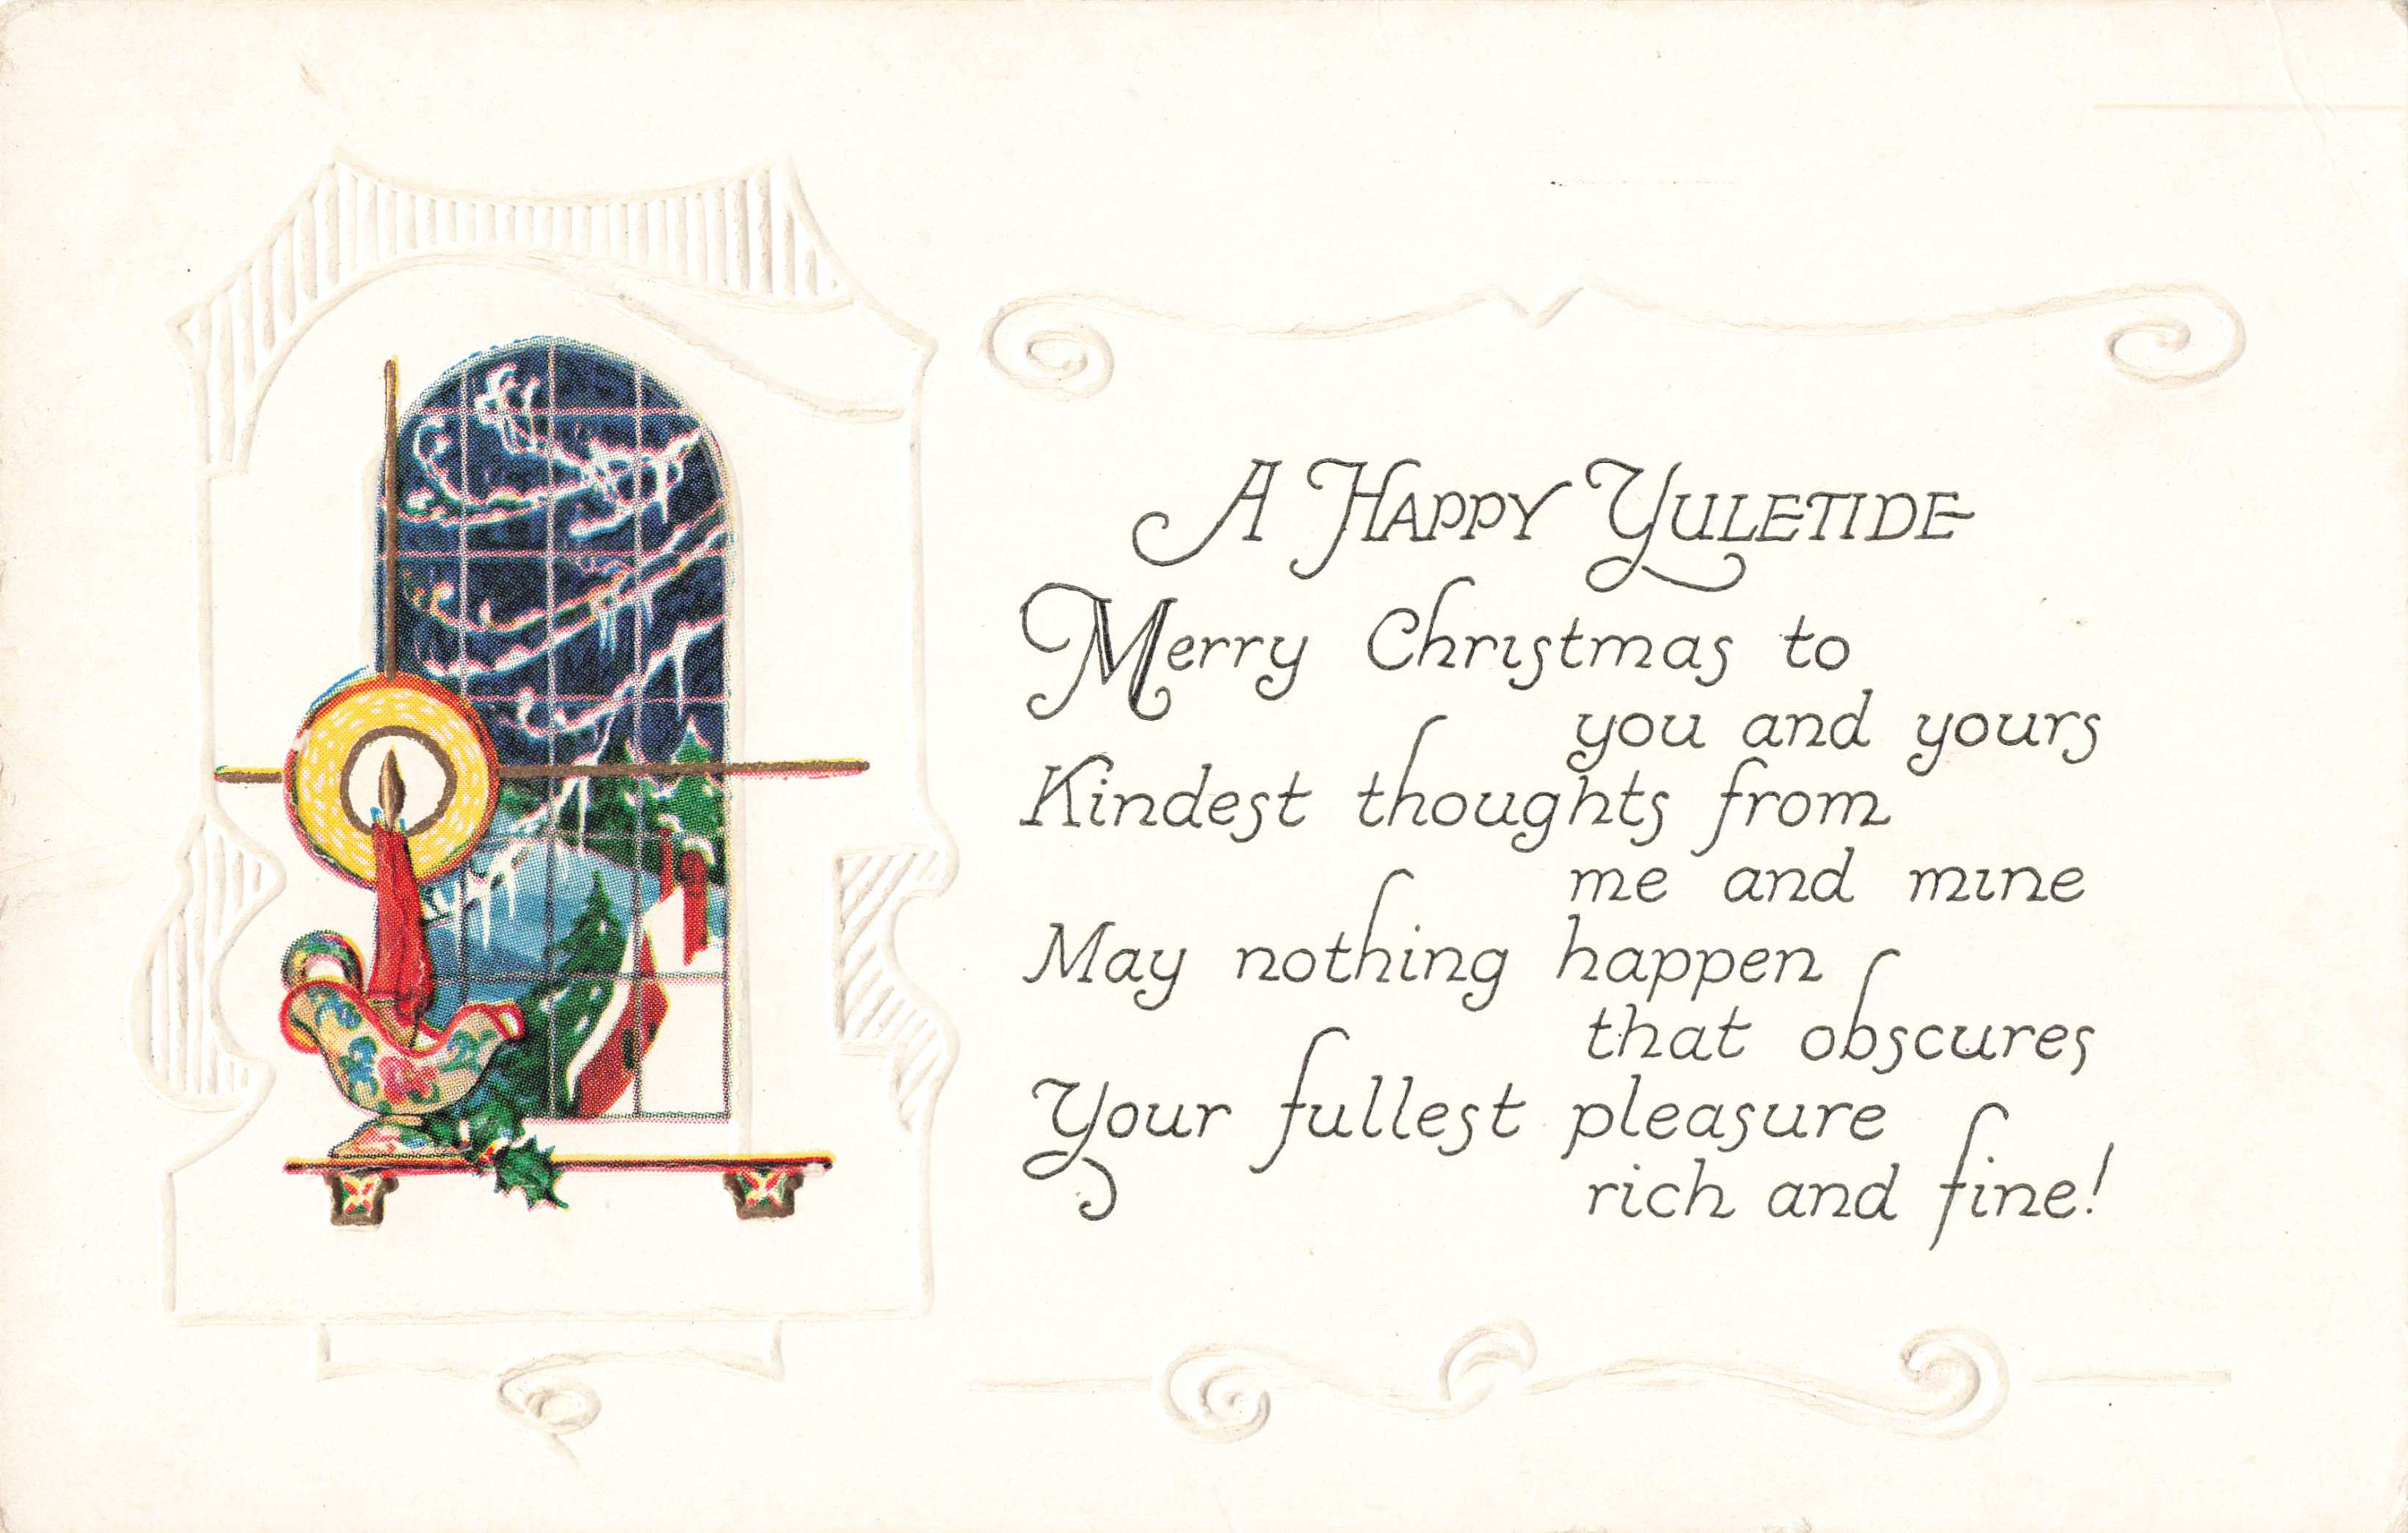 A HAPPY YULETIDE
Merry Christmas to
you and yours
Kindest thoughts from
me and mine
May nothing happen
that obscures
Your fullest pleasure
rich and fine!